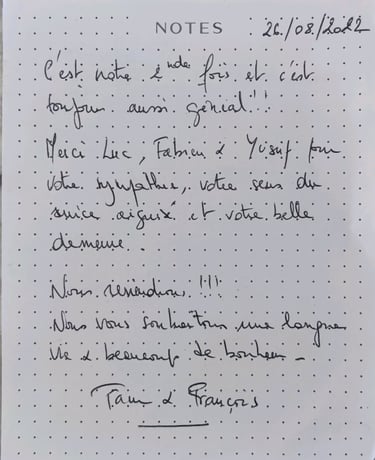 NOTES 26/08/2022
C'est notre 2nde fois et c'est
toujours aussi génial !!!
Merci Luc, Fabien & Yusuf pour
votre sympathie, votre sens du
service aiguisé et votre belle
demeure.
Nous reviendrons !!!
Nous vous souhaitons une longue
vie & beaucoup de bonheur -
& François